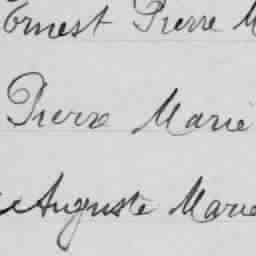 Ernest Pierre M
Pierre Marie
Auguste Marie